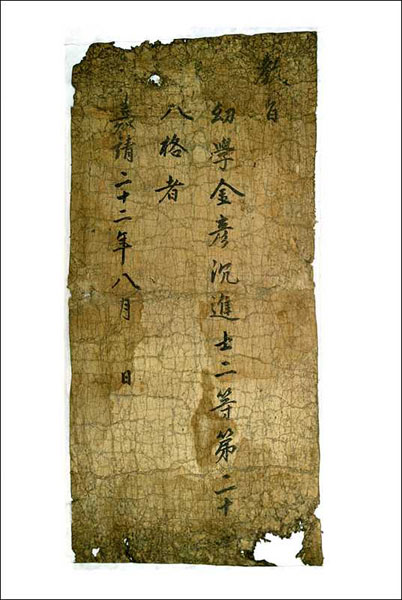 敎旨
幼學金彦沉進士二等第二十
入格者
嘉靖二十二年八月 日